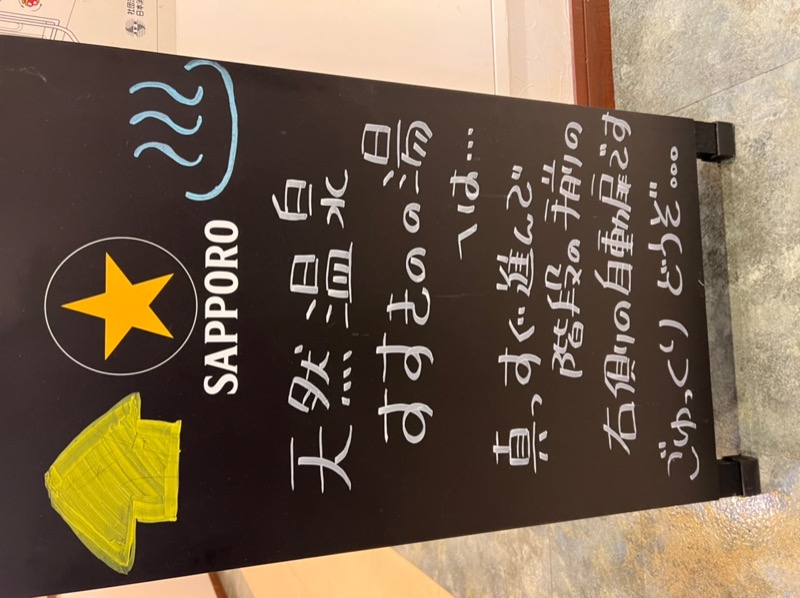 SAPPORO
天然温泉
すすきのの湯
へは…
真っすぐ進んで
階段の手前の
右側の自動扉です
ごゆっくりどうぞ…